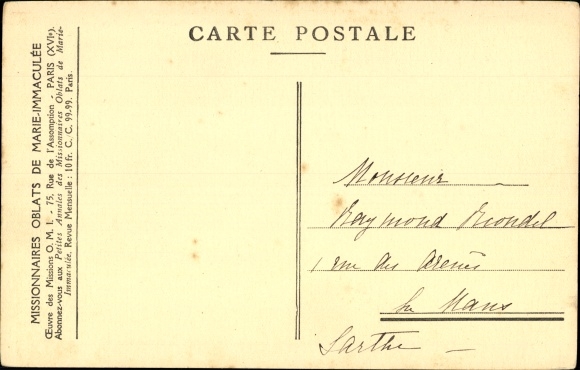 CARTE POSTALE
MISSIONNAIRES OBLATS DE MARIE-IMMACULÉE
Œuvre des Missions O. M. I. - 75, Rue de l'Assomption - PARIS (XVIe).
Abonnez-vous aux Petites Annales des Missionnaires Oblats de Marie-
Immaculée, Revue Mensuelle : 10 fr. C. C. 99-99, Paris.
Monsieur
Raymond
1 rue des Arènes
Le Mans
Sarthe